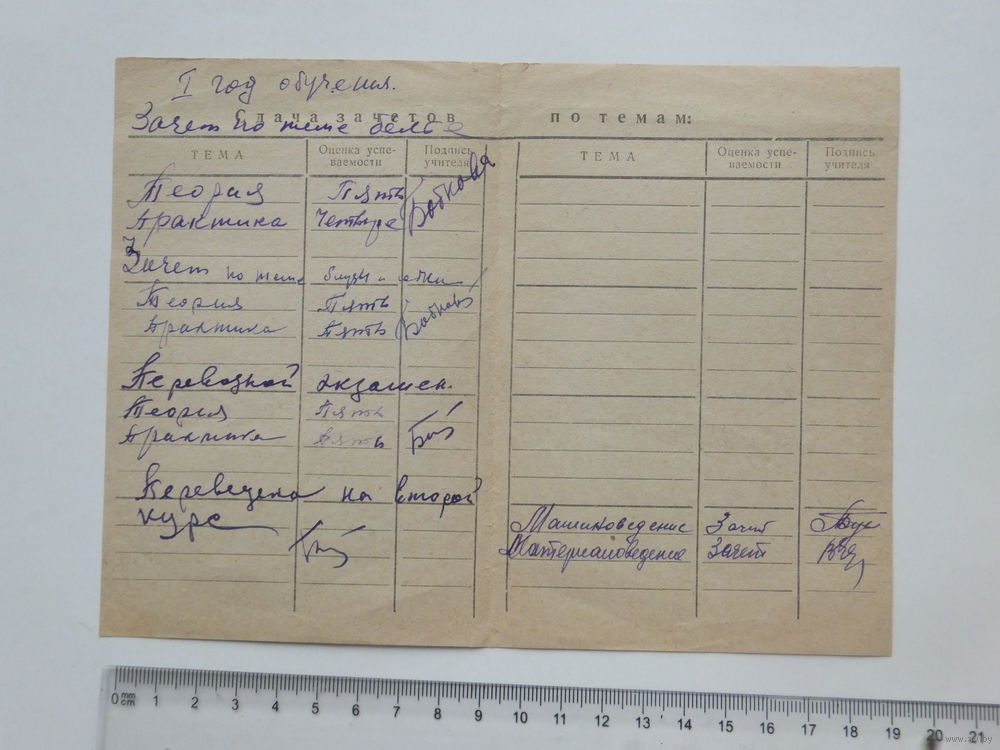 I год обучения.
Сдача зачетов по темам:
Зачет по теме белье
ТЕМА Оценка успе-ваемости Подпись учителя
Теория Пять Бобкова
Практика Четыре
Зачет по теме блузы и юбки
Теория Пять Бобкова
Практика Пять
Переводной экзамен.
Теория Пять
Практика Пять
Переведена на второй
курс
ТЕМА Оценка успе-ваемости Подпись учителя
Машиноведение Зачет
Материаловедение Зачет
0 mm cm 1 2 3 4 5 6 7 8 9 10 11 12 13 14 15 16 17 18 19 20 21